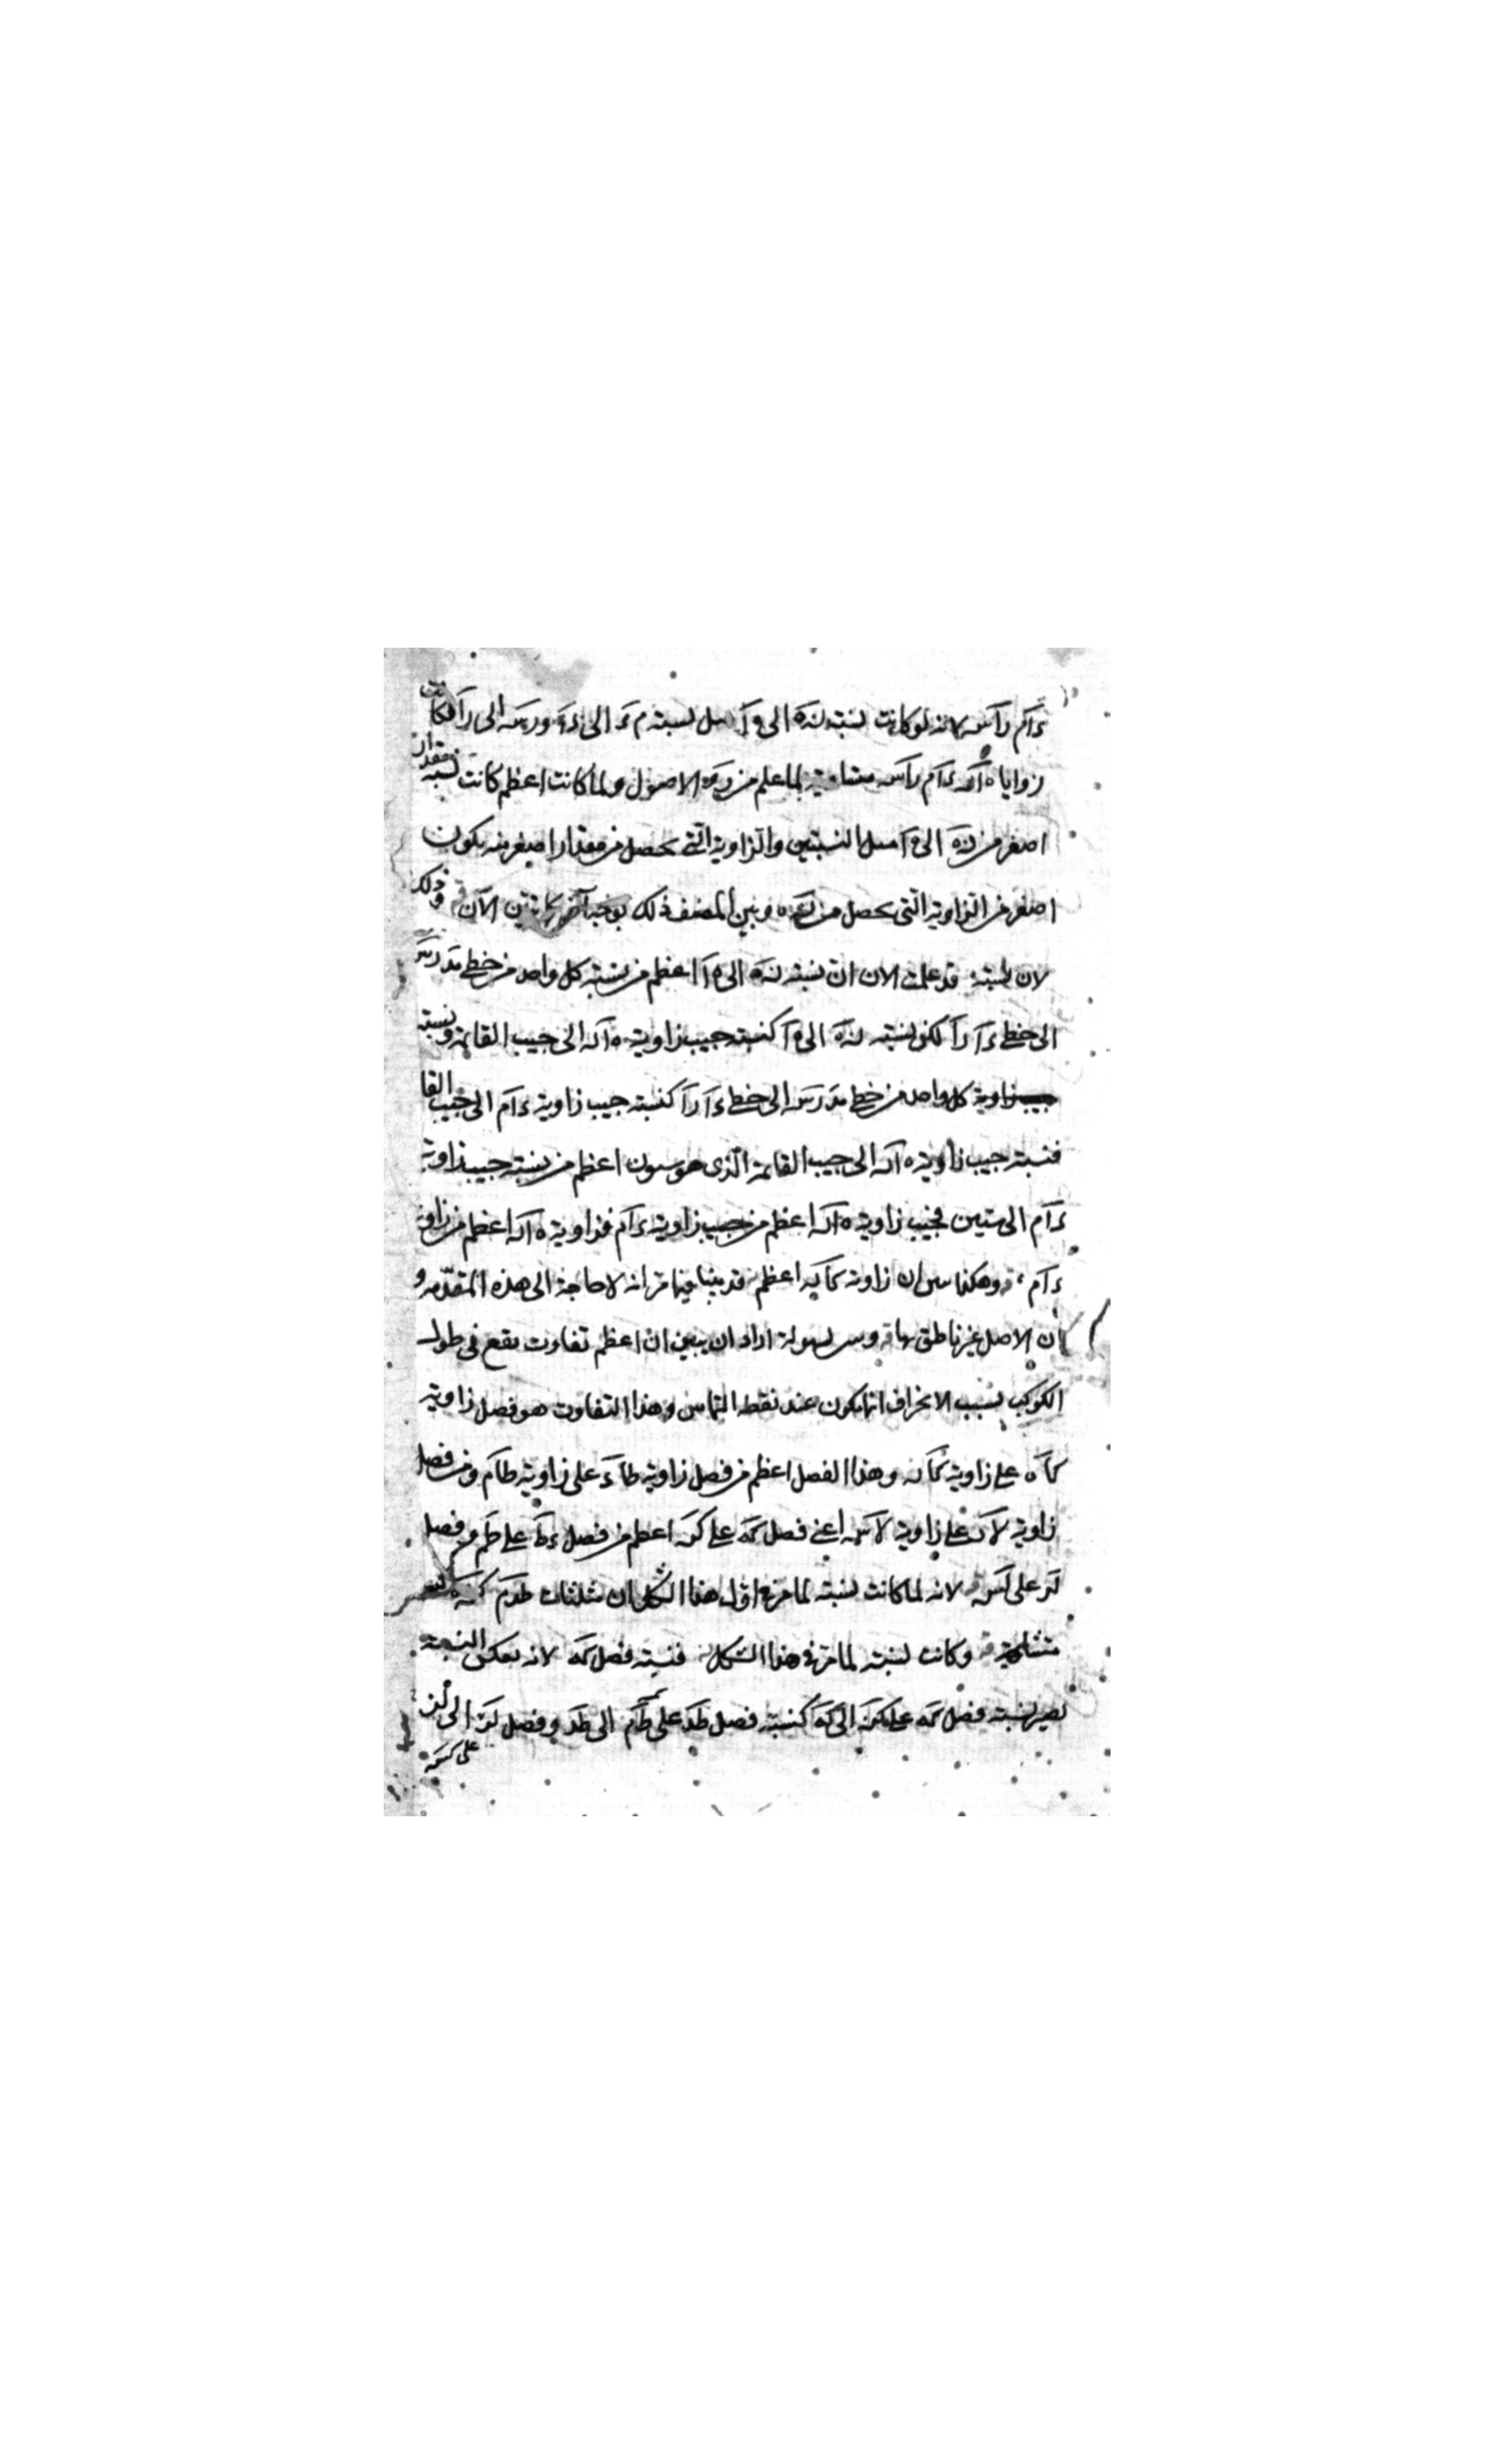 ءآم رآس لانه لو كانت نسبة نه الى ه آ مثل نسبة م ء الى ء آ ورس الى رآ فكانت
زوايا ه آن ءآم رآس متشابهة لما علم من الاصول ولما كانت اعظم كانت نسبة مقدار
اصغر من نه الى ه آ مثل النسبتين والزاوية التى تحصل من مقدار اصغر منه يكون
اصغر من الزاوية التى تحصل من نه وبين المصنف ذلك بوجه آخر الآن وذلك
لان نسبة قد علمت الان ان نسبة نه الى ه آ اعظم من نسبة كل واحد من خطى مء رس
الى خطى ءآ رآ لكن نسبة نه الى ه آ كنسبة جيب زاوية ه آن الى جيب القائمة ونسبة
كل واحد من خطى مء رس الى خطى ءآ رآ كنسبة جيب زاوية ءآم الى جيب القا
فنسبة جيب زاوية ه آن الى جيب القائمة الذى هو ستون اعظم من نسبة جيب زاوية
ءآم الى ستين فجيب زاوية ه آن اعظم من جيب زاوية ءآم فزاوية ه آن اعظم من زاوية
ءآم وهكذا بين ان زاوية اعظم قد بينا فيما مر انه لا حاجة الى هذه المقدمة و
ان الاصل غير ناطق بها وبين بسهولة اراد ان يبين ان اعظم تفاوت يقع فى طول
الكوكب بسبب الانحراف انما يكون عند نقطة التماس وهذا التفاوت هو فصل زاوية
كآه على زاوية كآن وهذا الفصل اعظم من فصل زاوية طآء على زاوية طآم ومن فصل
زاوية لآر على زاوية لآس اعنى فصل كه على كن اعظم من فصل ءط على طم وفصل
لر على لس لانه لما كانت نسبة لما مر فى اول هذا الشكل ان مثلثات طءم كهن
متشابهة وكانت نسبة لما مر فى هذا الشكل فنسبة فصل كه لانه بعكس النسبة
يصير نسبة فصل كه على كن الى كه كنسبة فصل طء على طم الى طء وفصل لر الى لر
على